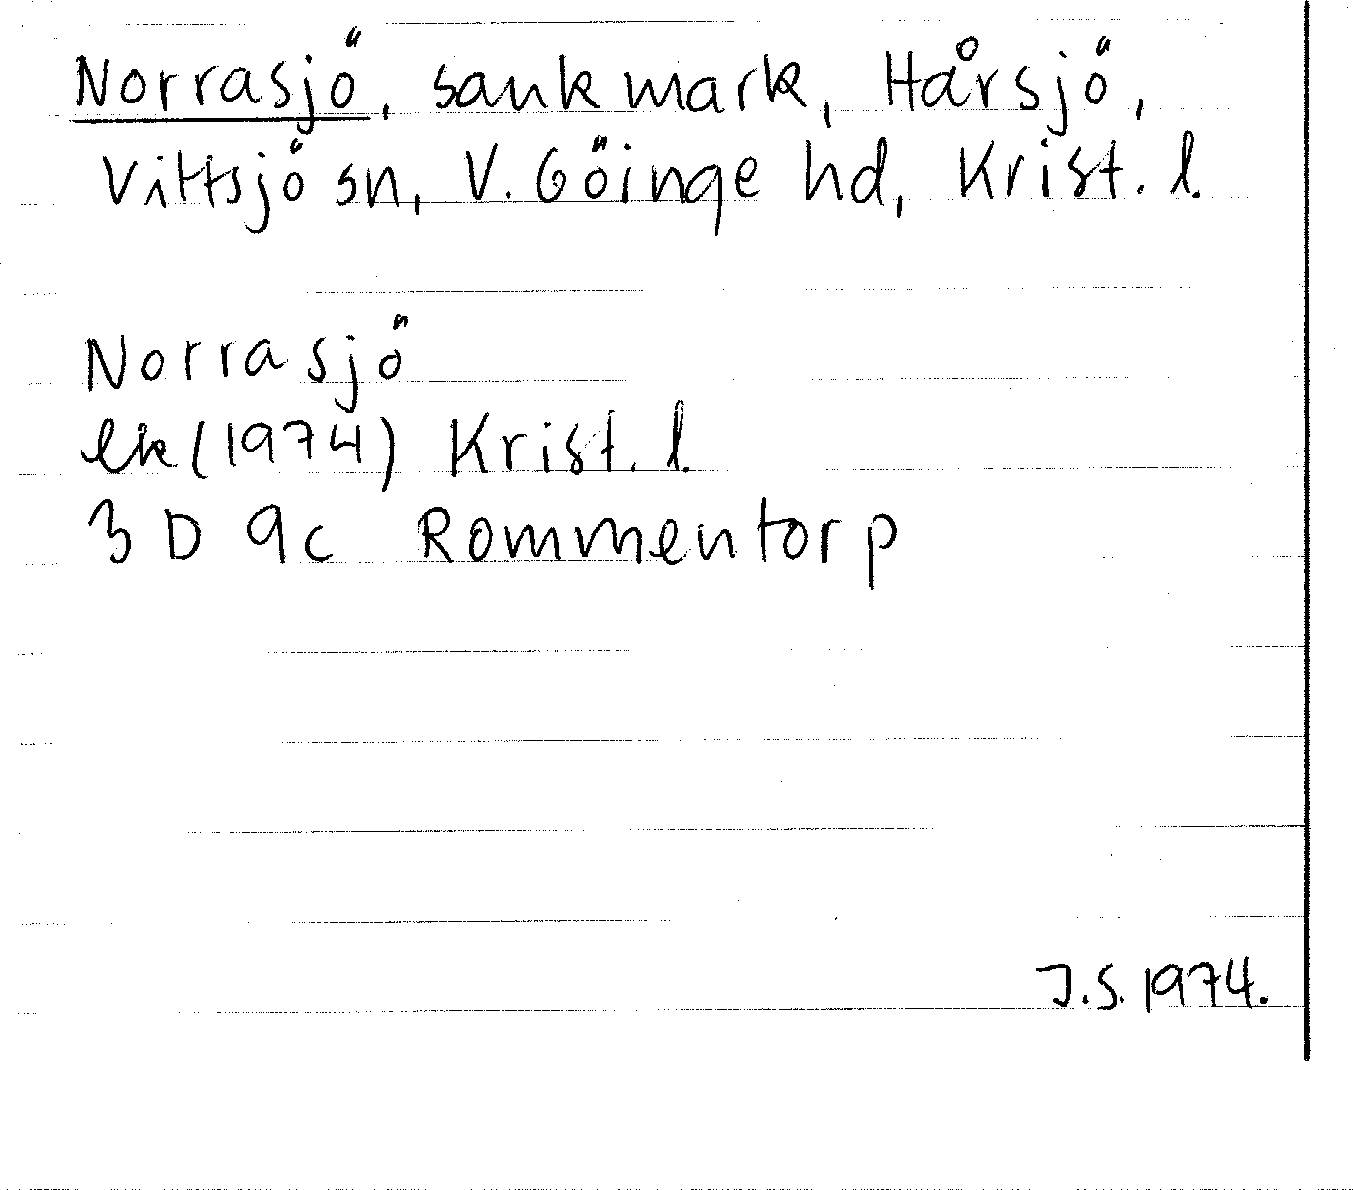 Norrasjö, sank mark, Hårsjö,
Vittsjö sn, V. Göinge hd, Krist. l.
Norrasjö
ek (1974) Krist. l.
3 D 9c Rommentorp
J.S. 1974.